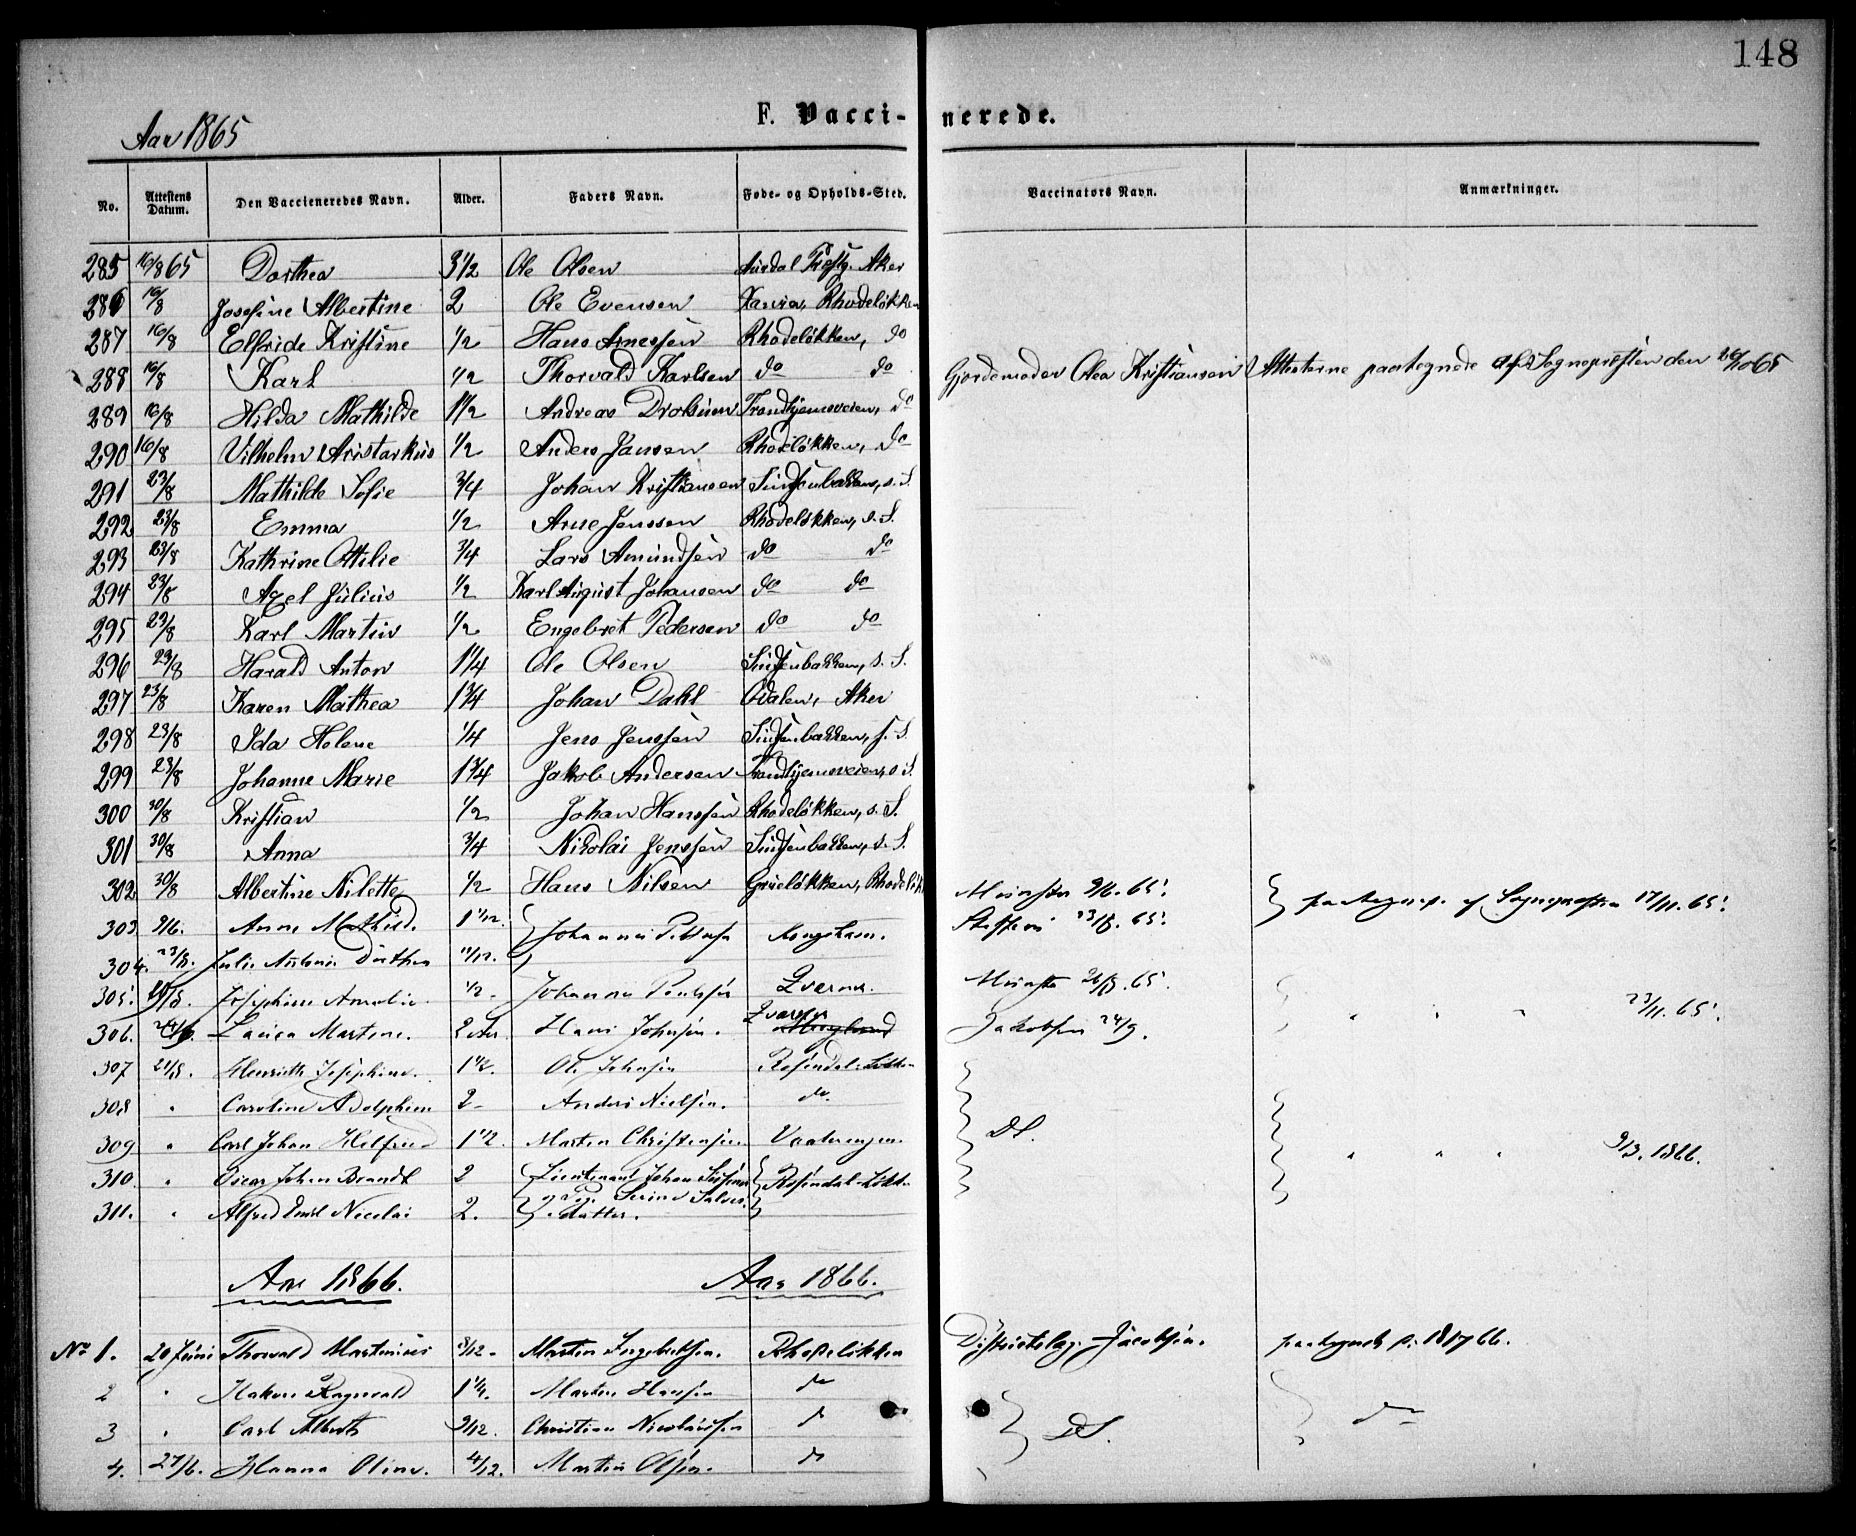 148
F. Vacci- nerede.
Aar 1865
No. Attestens Datum. Den Vaccineredes Navn. Alder. Faders Navn. Føde- og Opholds-Sted. Vaccinators Navn. Anmærkninger.
285 16/8 65 Dorthea 3 1/2 Ole Olsen Aurdal Præstg. Aker
286 16/8 Josefine Albertine 2 Ole Evensen Rhodeløkken
287 16/8 Elfride Kristine 1/2 Hans Arnessen Rhodeløkken, do
288 16/8 Karl 1/2 Thorvald Karlsen do do Gjordemoder Olea Kristiansen Attesterne paategnede af Sognepræsten den 26/10 65
289 16/8 Hilda Mathilde 1 1/2 Andreas Trondhjemsveien, do
290 16/8 Vilhelm Aristarkus 1/2 Anders Jansen Rhodeløkken, do
291 23/8 Mathilde Sofie 3/4 Johan Kristiansen Sindsenbakken, s. S.
292 23/8 Emma 1/2 Arne Jenssen Rhodeløkken, s. S.
293 23/8 Kathrine Ottilie 3/4 Lars Amundsen do do
294 23/8 Axel Julius 1/2 Karl August Johansen do do
295 23/8 Karl Martin 1/2 Engebret Pedersen do do
296 23/8 Harald Anton 1 1/4 Ole Olsen Sindsenbakken, s. S.
297 23/8 Karen Mathea 1 3/4 Johan Dahl Odalen, Aker
298 23/8 Ida Helene 1/4 Jens Jenssen Sindsenbakken, s. S.
299 23/8 Johanne Marie 1 3/4 Jakob Andersen Trondhjemsveien, s. S.
300 30/8 Kristian 1/2 Johan Hanssen Rhodeløkken, s. S.
301 30/8 Anna 3/4 Nikolai Jenssen Sindsenbakken, s. S.
302 30/8 Albertine Nilette 1/2 Hans Nilsen Grüeløkken, Rhodeløk
303 9/6. Anne Mathild. 1 1/12. Johannes Kongshavn. 9/6. 65. Sognepræsten 17/11. 65.
304. 23/8. Julie Antonie Dorthea 11/12. 23/8. 65.
305. Josephine Amalie 1/2. Johannes Qværner. 65.
306. Laura Martine. 2 Aar. Hans Johnsen. Qværner Jakobsen 24/9. " " " 23/11. 65.
307 Henriette Josephine. 1 1/2. Ole Johnsen Rosendal-Løkken
308 " Caroline Adolphine 2 - Anders Nielsen. do.
309 " Carl Johan 1 1/2. Martin Christensen DS. " " " 9/3. 1866.
310. " Oscar Johan Brandt 2 Lieutenant Johan Rosendal-Løkk.
311. " Alfred Emil Nicolai 2. datter.
Aar 1866. Aar 1866.
No 1. 20 Juni Thorvald Martinius 8/12. Martin Ingebretsen. Rhodeløkken Distriktslæg. Jacobsen.
2 " Hakon Ragnvald 1 1/4. Martin Hansen do
3 " Carl Albert 9/12. Christian Nicolaissen do DS. do
4. 27/6. Hanna Oline. 4/12. Martin Olsen. do